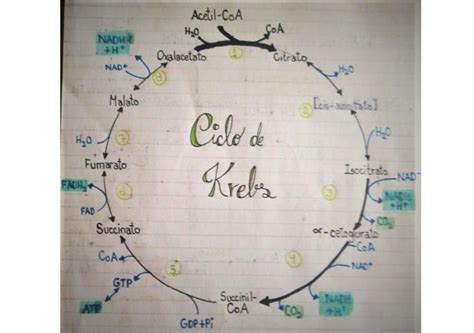 Acetil-CoA
H₂O
CoA
NADH
+H⁺
NAD⁺
Oxalacetato
1
Citrato
H₂O
8
Malato
2
[cis-aconitato]
Ciclo de
Krebs
H₂O
7
H₂O
Fumarato
Isocitrato
FADH₂
6
3
NAD⁺
NADH
+H⁺
FAD
CO₂
Succinato
α-cetoglurato
CoA
CoA
5
4
NAD⁺
GTP
NADH
+H⁺
ATP
Succinil-
CoA
CO₂
GDP+Pi